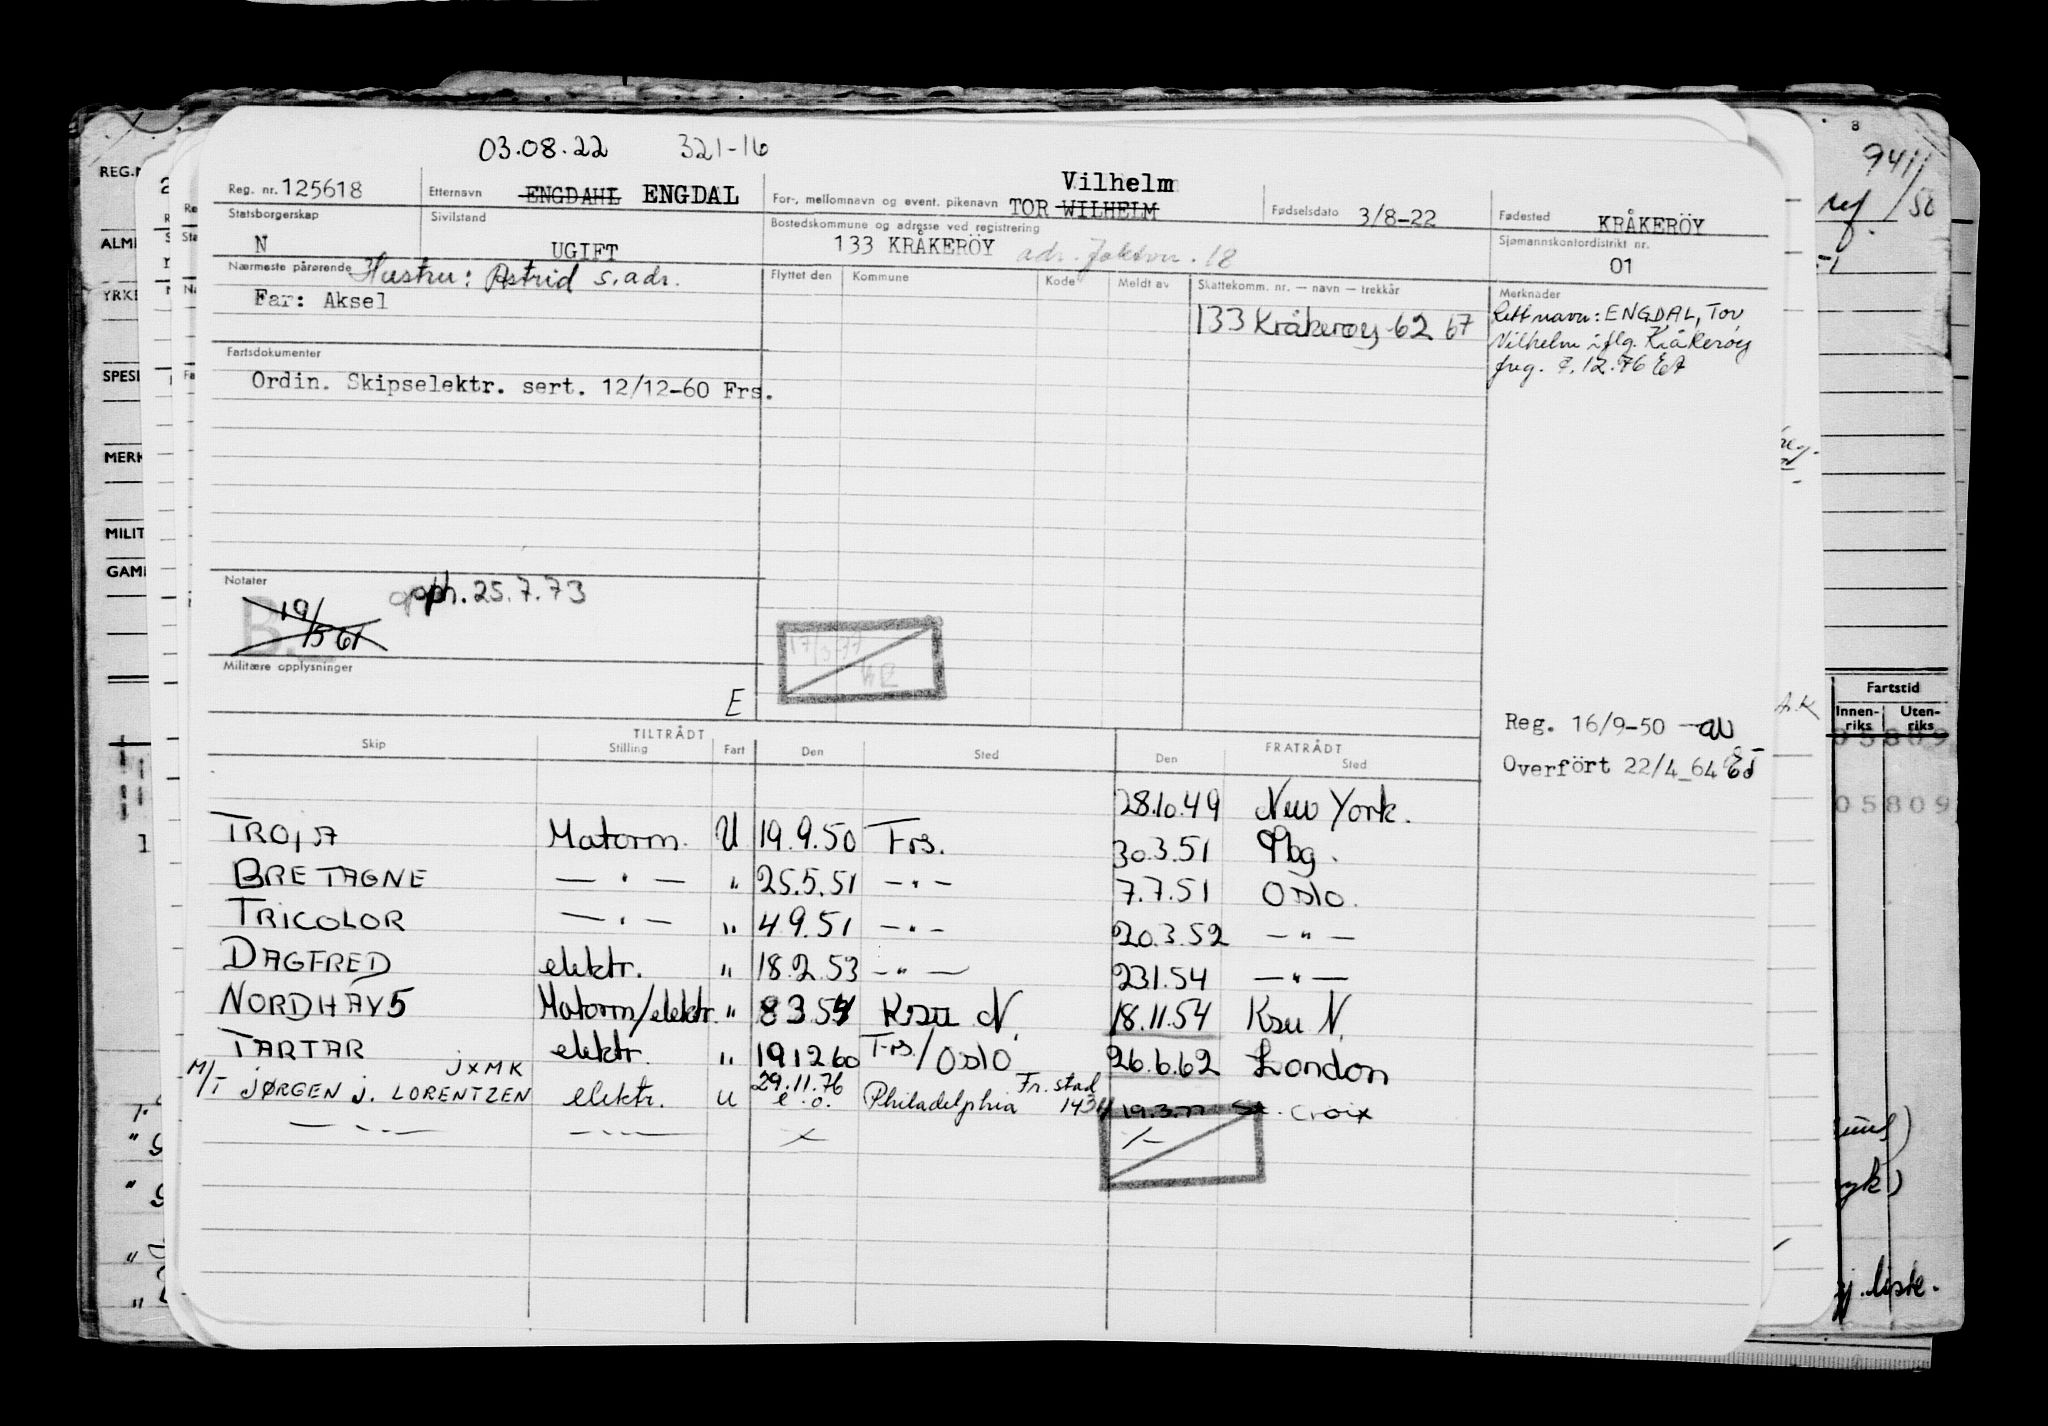 03.08.22 321-16
Reg. nr. 125618 Etternavn ENGDAHL ENGDAL For-, mellomnavn og event. pikenavn TOR WILHELM Vilhelm Fødselsdato 3/8-22 Fødested KRÅKERÖY
Statsborgerskap N Sivilstand UGIFT Bostedskommune og adresse ved registrering 133 KRÅKERÖY adr. 18 Sjømannskontordistrikt nr. 01
Nærmeste pårørende Hustru: Astrid s. adr.
Far: Aksel
Flyttet den Kommune Kode Meldt av Skattekomm. nr. — navn — trekkår
133 Kråkeröy 62 67
Merknader
Rett navn: ENGDAL, Tor
Vilhelm iflg. Kråkeröy
freg. 7.12.76 EA
Fartsdokumenter
Ordin. Skipselektr. sert. 12/12-60 Frs.
Notater
B. 19/5 61 opph. 25.7.73
17/3-77
Militære opplysninger
E
Reg. 16/9-50
Overfört 22/4-64
TILTRÅDT FRATRÅDT
Skip Stilling Fart Den Sted Den Sted
28.10.49 New York.
TROJA Motorm. U 19.9.50 Frs. 30.3.51 Pbg.
BRETAGNE — " — " 25.5.51 — " — 7.7.51 Oslo.
TRICOLOR — " — " 4.9.51 — " — 20.3.52 — " —
DAGFRED elektr. " 18.2.53 — " — 23.1.54 — " —
NORDHAV 5 Motorm/elektr. " 8.3.54 Ksu N. 18.11.54 Ksu N.
TARTAR elektr. " 19.12.60 Frs./Oslo 26.6.62 London
M/T JØRGEN J. LORENTZEN JXMK elektr. U 29.11.76 e.o. Philadelphia Fr. stad 1434 19.3.77 St. Croix
— " — — " — X X
REG.N
ALM
YRKE
SPESI
MERK
MILIT
GAM
8
9411
/50
Fartstid
Innenriks Utenriks
05809
05809
liste.